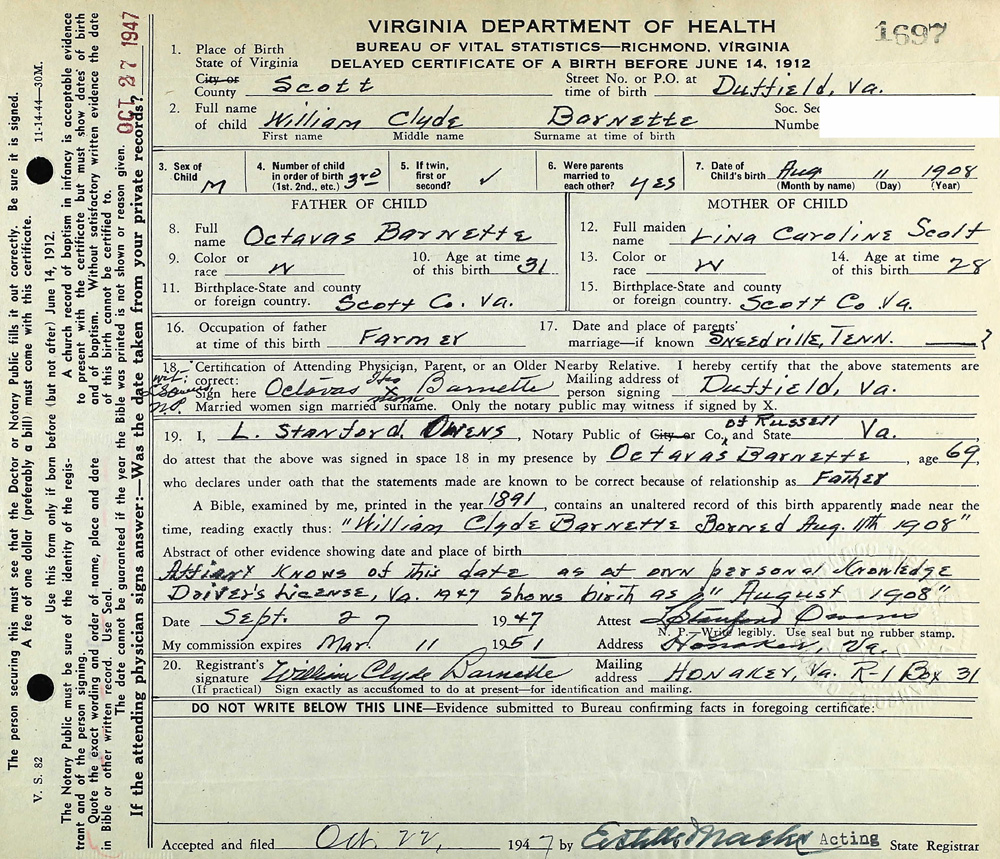 VIRGINIA DEPARTMENT OF HEALTH
1697
BUREAU OF VITAL STATISTICS—RICHMOND, VIRGINIA
DELAYED CERTIFICATE OF A BIRTH BEFORE JUNE 14, 1912
1. Place of Birth
State of Virginia
City or County Scott Street No. or P.O. at time of birth Duffield, Va.
2. Full name of child William Clyde Barnette Soc. Sec Numbe
First name Middle name Surname at time of birth
3. Sex of Child M 4. Number of child in order of birth (1st. 2nd., etc.) 3rd 5. If twin, first or second? ✓ 6. Were parents married to each other? yes 7. Date of Child's birth Aug 11 1908
(Month by name) (Day) (Year)
FATHER OF CHILD MOTHER OF CHILD
8. Full name Octavas Barnette 12. Full maiden name Lina Caroline Scott
9. Color or race W 10. Age at time of this birth 31 13. Color or race W 14. Age at time of this birth 28
11. Birthplace-State and county or foreign country. Scott Co. Va. 15. Birthplace-State and county or foreign country. Scott Co. Va.
16. Occupation of father at time of this birth Farmer 17. Date and place of parents' marriage—if known Sneedville, Tenn.
18. Certification of Attending Physician, Parent, or an Older Nearby Relative. I hereby certify that the above statements are
correct:
Sign here Octavas Barnette Mailing address of person signing Duffield, Va.
Married women sign married surname. Only the notary public may witness if signed by X.
19. I, L. Stanford Owens, Notary Public of City or Co. of Russell and State Va.
do attest that the above was signed in space 18 in my presence by Octavas Barnette, age 69,
who declares under oath that the statements made are known to be correct because of relationship as Father
A Bible, examined by me, printed in the year 1891, contains an unaltered record of this birth apparently made near the
time, reading exactly thus: "William Clyde Barnette Borned Aug. 11th 1908"
Abstract of other evidence showing date and place of birth
Affiant knows of this date as of own personal knowledge
Driver's License, Va. 1947 shows birth as " August 1908"
Date Sept. 27 1947 Attest L Stanford Owens
N. P.—Write legibly. Use seal but no rubber stamp.
My commission expires Mar. 11 1951 Address Honaker, Va.
20. Registrant's signature William Clyde Barnette Mailing address Honaker, Va. R-1 Box 31
(If practical) Sign exactly as accustomed to do at present—for identification and mailing.
DO NOT WRITE BELOW THIS LINE—Evidence submitted to Bureau confirming facts in foregoing certificate:
Accepted and filed Oct. 22, 1947 by Acting State Registrar
The person securing this must see that the Doctor or Notary Public fills it out correctly. Be sure it is signed.
A fee of one dollar (preferably a bill) must come with this certificate.
V. S. 82 11-14-44—30M.
Use this form only if born before (but not after) June 14, 1912.
The Notary Public must be sure of the identity of the regis-
trant and of the person signing.
Quote the exact wording and order of name, place and date
in Bible or other written record. Use Seal.
A church record of baptism in infancy is acceptable evidence
to present with the certificate but must show dates of birth
and of baptism. Without satisfactory written evidence the date
of this birth cannot be certified to.
The date cannot be guaranteed if the year the Bible was printed is not shown or reason given.
OCT 27 1947
If the attending physician signs answer:—Was the date taken from your private records?